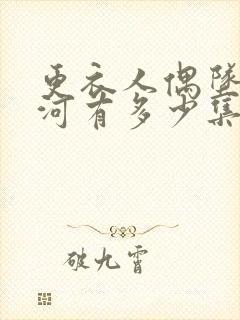 更衣人偶坠
河有多少集
破九霄